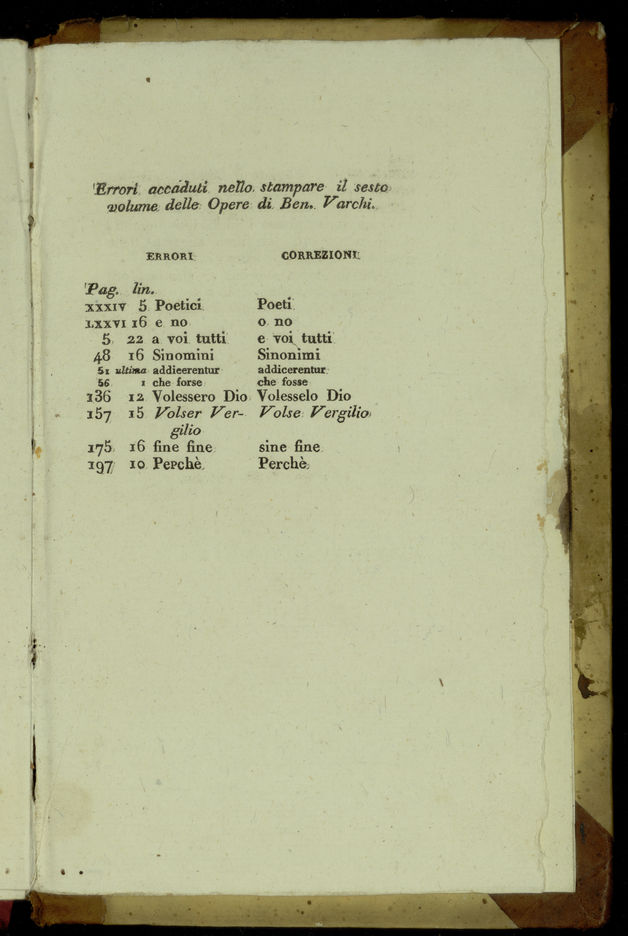 Errori accaduti nello stampare il sesto
volume delle Opere di Ben. Varchi.
ERRORI CORREZIONI
Pag. lin.
XXXIV 5 Poetici Poeti
LXXVI 16 e no o no
5 22 a voi tutti e voi tutti
48 16 Sinomini Sinonimi
51 ultima addieerentur addicerentur
56 1 che forse che fosse
136 12 Volessero Dio Volesselo Dio
157 15 Volser Ver- Volse Vergilio
gilio
175 16 fine fine sine fine
197 10 Perchè Perchè